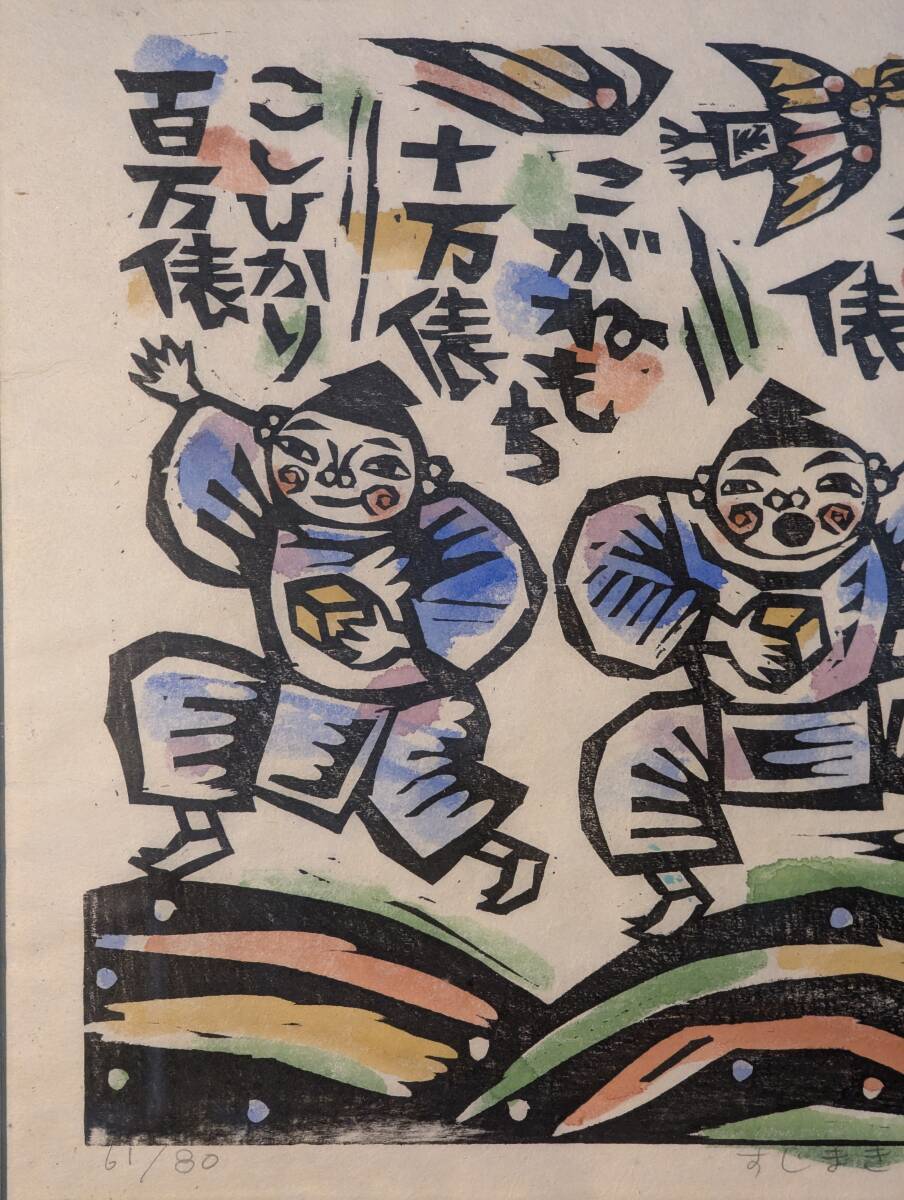 俵
こがねもち
十万俵
こしひかり
百万俵
61/80
すじまき